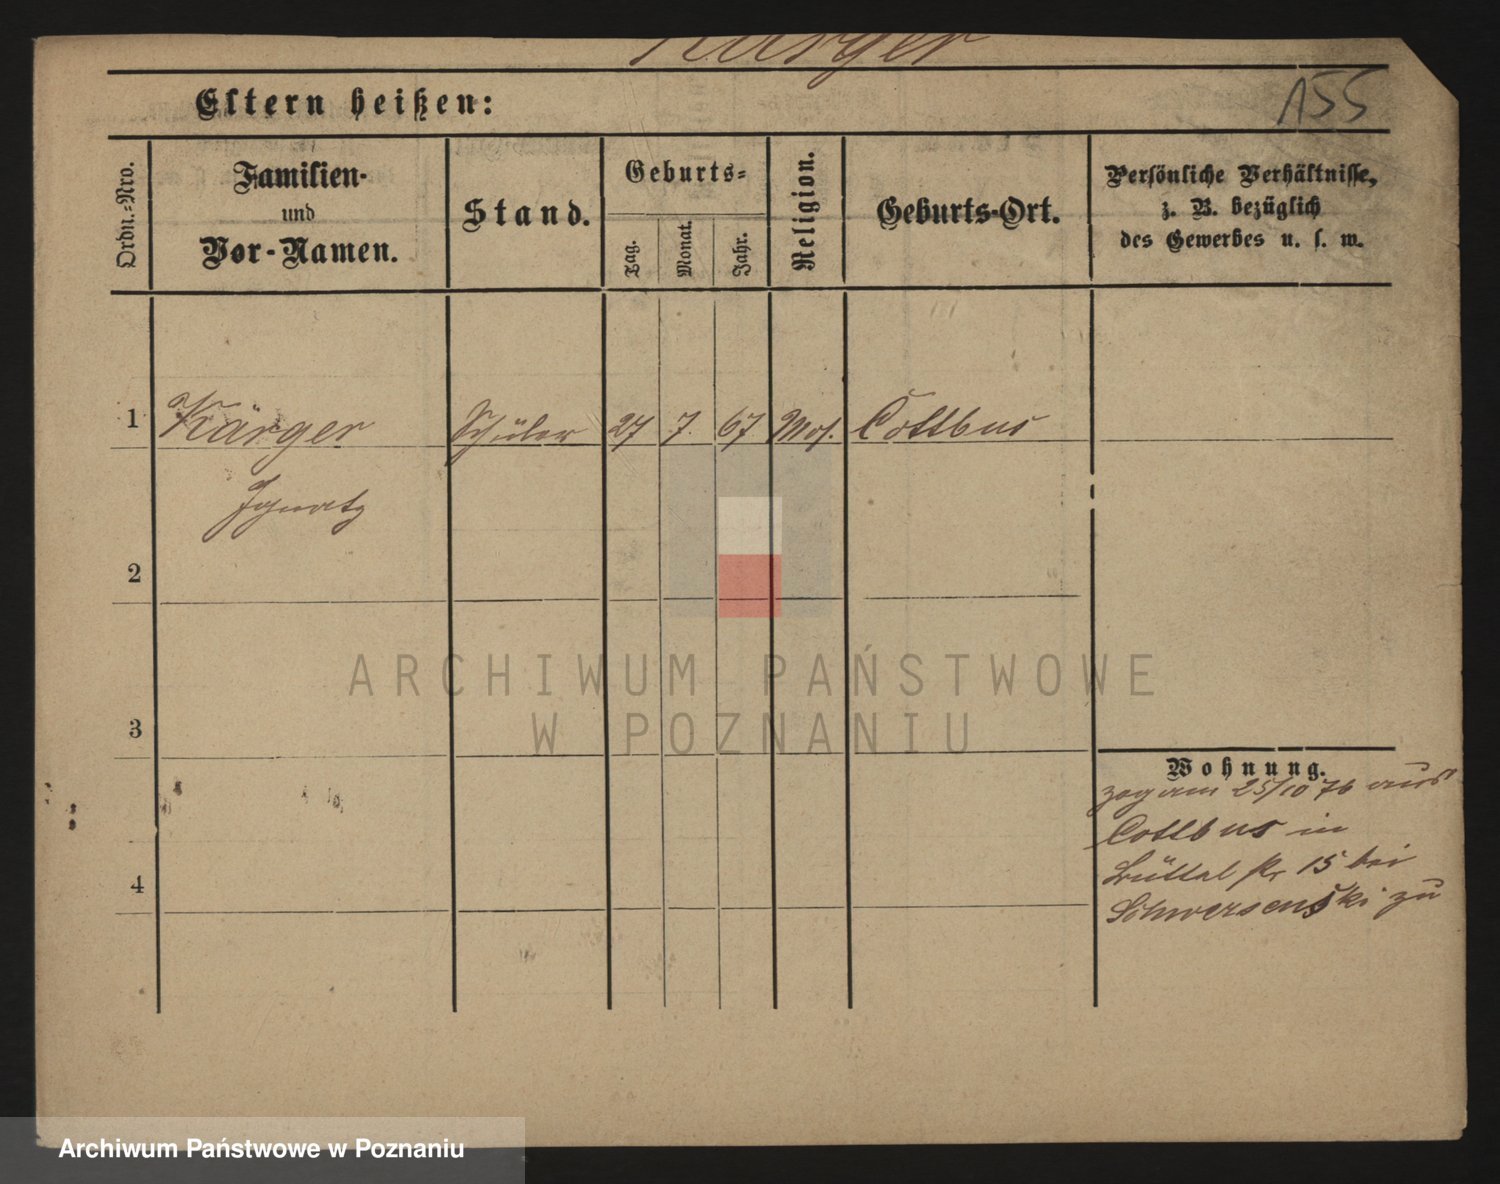 Kärger
155
Eltern heißen:
Ordn.-Nro.
Familien-
und
Vor-Namen.
Stand.
Geburts-
Tag.
Monat.
Jahr.
Religion.
Geburts-Ort.
Persönliche Verhältnisse,
z. B. bezüglich
des Gewerbes u. s. w.
1 Kärger Schüler 27 7. 67 Mos. Cottbus
Ignatz
2
3
4
Wohnung.
zog am 25/10 76 aus
Cottbus in
Büttel str 15 bei
Schwersenski zu
ARCHIWUM PAŃSTWOWE
W POZNANIU
Archiwum Państwowe w Poznaniu